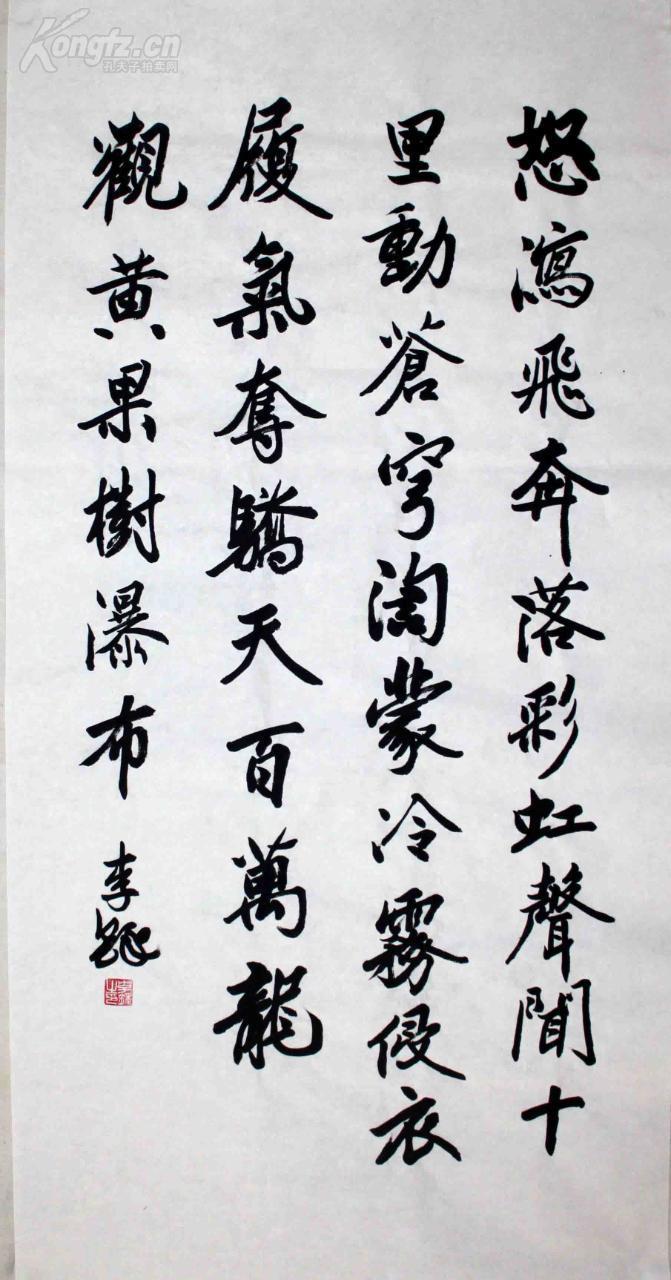 怒瀉飛奔落彩虹聲聞十
里動蒼穹淘蒙冷霧侵衣
履氣奪驕天百萬龍
觀黃果樹瀑布
李
Kongfz.cn
孔夫子拍卖网